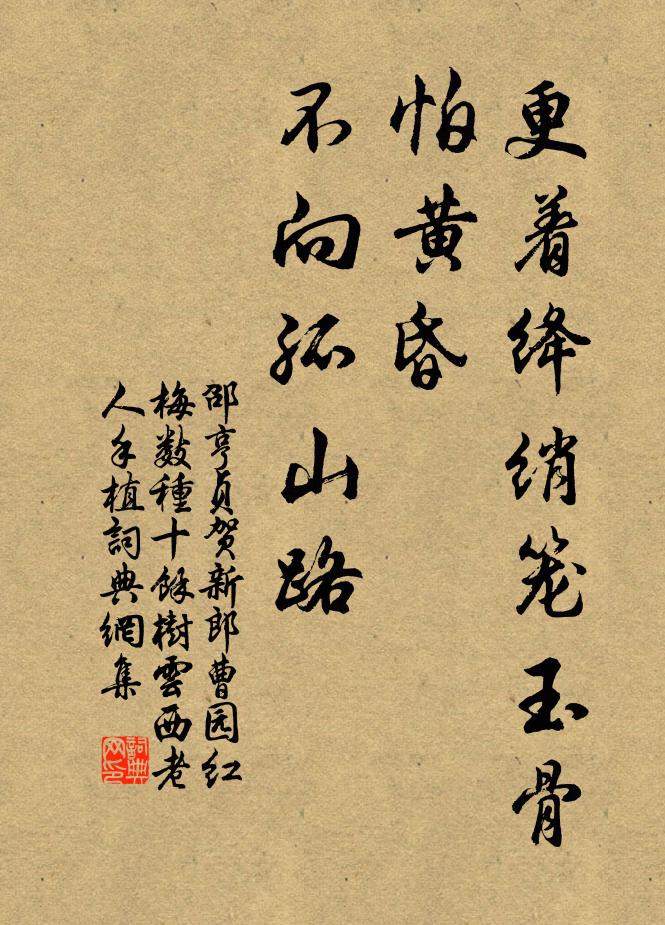 更着绛绡笼玉骨
怕黄昏
不向孤山路
邵亨贞贺新郎曹园红
梅数種十餘樹雲西老
人手植詞典網集
詞典网印